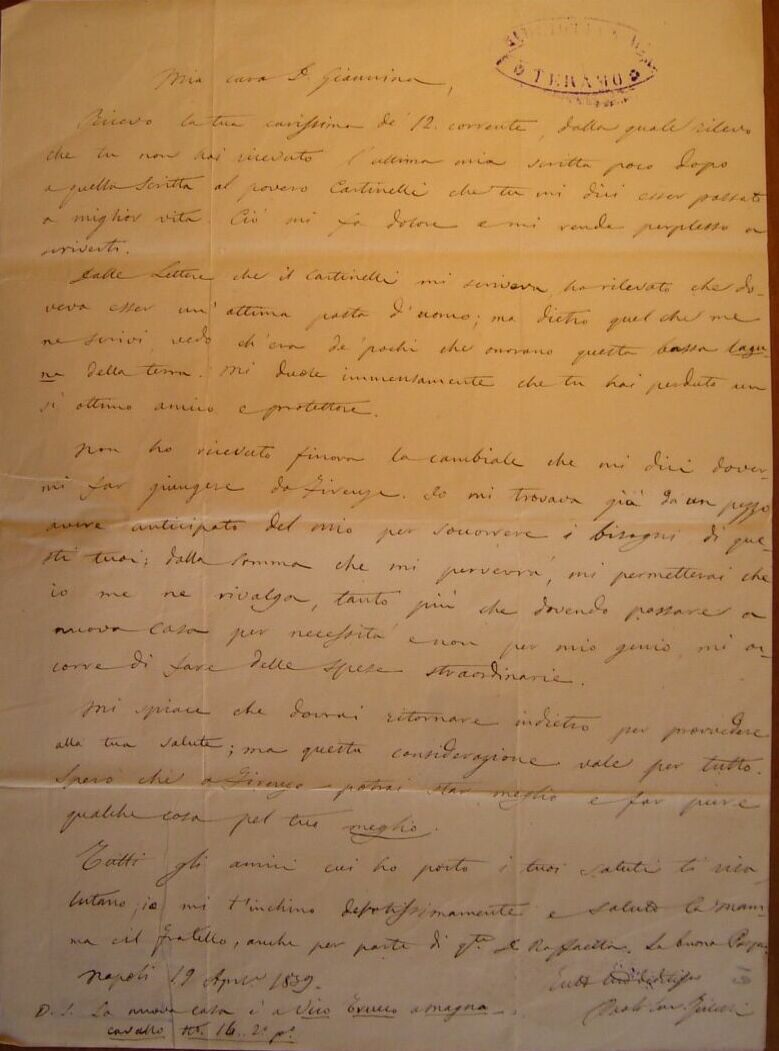 TERAMO
Mia cara D. Giannina,
Ricevo la tua carissima de' 12. corrente, dalla quale rilevo
che tu non hai ricevuto l'ultima mia scritta poco dopo
a quella scritta al povero Cartinelli che tu mi dici esser passato
a miglior vita. Ciò mi fa dolore e mi rende perplesso a
scriverti.
Dalle Lettere che il Cartinelli mi scriveva, ho rilevato che do-
veva esser un' ottima pasta d'uomo; ma dietro quel che me
ne scrivi, vedo ch'era de' pochi che onorano questa bassa lagu-
na della terra. Mi duole immensamente che tu hai perduto un
sì ottimo amico e protettore.
Non ho ricevuto finora la cambiale che mi dici dover-
mi far giungere da Firenze. Io mi trovava già da un pezzo
avere anticipato del mio per soccorrere i bisogni di que-
sti tuoi; dalla somma che mi perverrà, mi permetterai che
io me ne rivalga, tanto più che dovendo passare a
nuova casa per necessità e non per mio genio, mi oc-
corre di fare delle spese straordinarie.
Mi spiace che dovrai ritornare indietro per provvedere
alla tua salute; ma questa considerazione vale per tutto.
Spero che a Firenze potrai star meglio e far pure
qualche cosa pel tuo meglio.
Tutti gli amici cui ho porto i tuoi saluti ti risa-
lutano; io mi t'inchino devotissimamente e saluto la mam-
ma e il fratello, anche per parte di D. Raffaella. La buona Pasqua.
Napoli 19 Apr. 1859.
P. S. La nuova casa è a Vico a magna
cavallo No. 16. 2o. po.